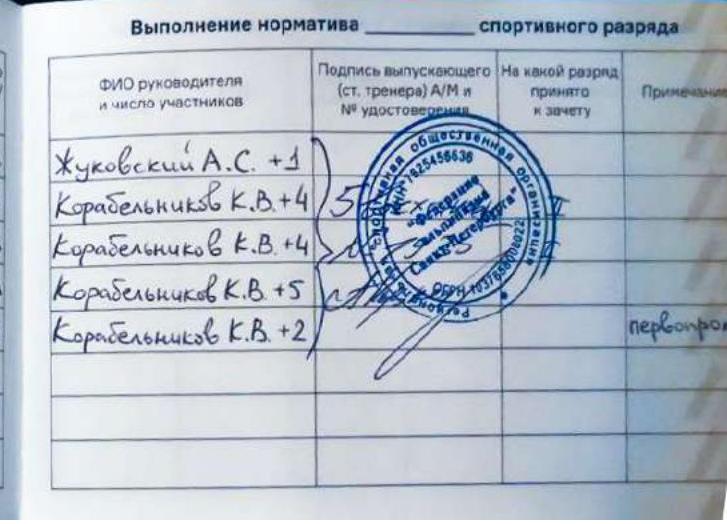 Выполнение норматива __________ спортивного разряда
ФИО руководителя
и число участников
Подпись выпускающего
(ст. тренера) А/М и
№ удостоверения
На какой разряд
принято
к зачету
Примечание
Жуковский А.С. +1
Корабельников К.В. +4
Корабельников К.В. +4
Корабельников К.В. +5
Корабельников К.В. +2
первопрох
Региональная общественная организация
"Федерация
альпинизма
Санкт-Петербурга"